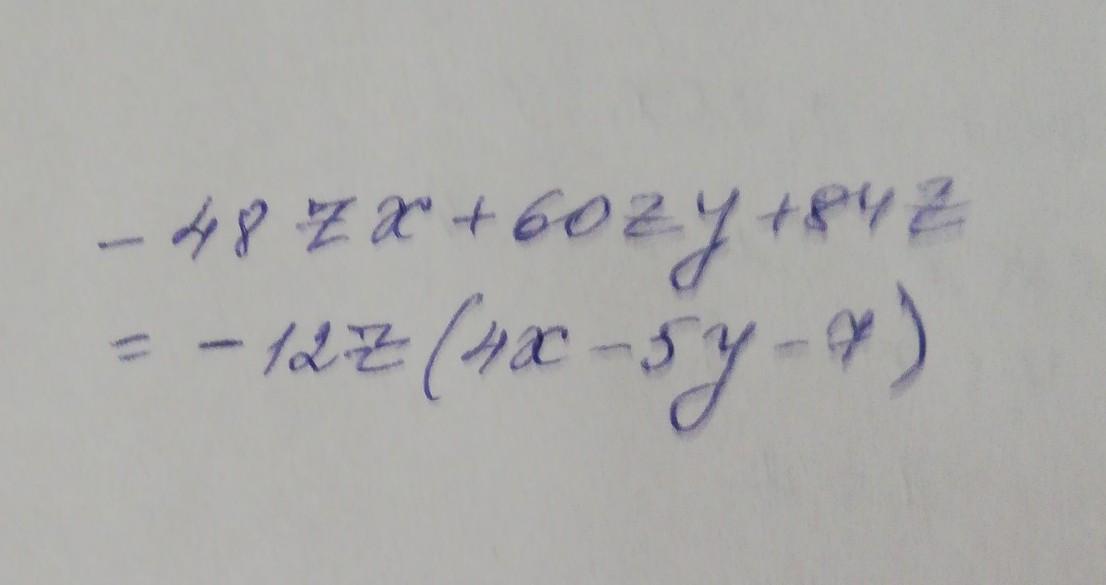 - 48 zx + 60zy + 84z
= - 12z (4x - 5y - 7)